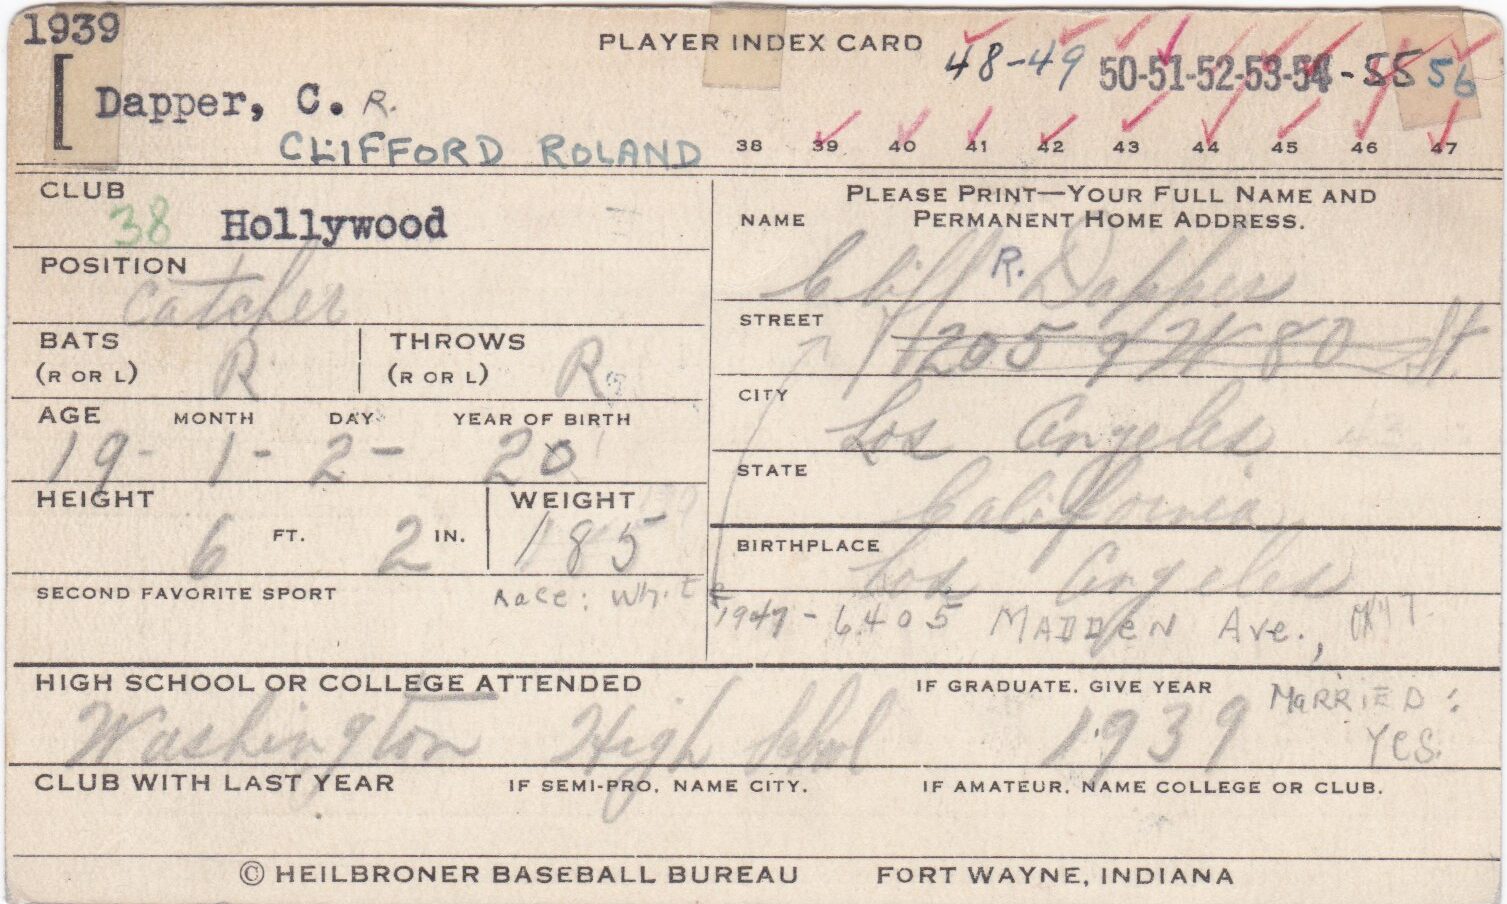 1939
PLAYER INDEX CARD
48-49 50-51-52-53-54-55 56
Dapper, C. R.
CLIFFORD ROLAND
38 39 40 41 42 43 44 45 46 47
CLUB
38 Hollywood
POSITION
Catcher
BATS THROWS
(R OR L) R (R OR L) R
AGE MONTH DAY YEAR OF BIRTH
19- 1- 2- 20
HEIGHT WEIGHT
6 FT. 2 IN. 185
SECOND FAVORITE SPORT Race: White
PLEASE PRINT—YOUR FULL NAME AND
NAME PERMANENT HOME ADDRESS.
Cliff R. Dapper
STREET
W 80 St.
CITY
Los Angeles
STATE
California
BIRTHPLACE
Los Angeles
1947-6405 MADDEN Ave.,
HIGH SCHOOL OR COLLEGE ATTENDED IF GRADUATE, GIVE YEAR MARRIED:
Washington High School 1939 Yes.
CLUB WITH LAST YEAR IF SEMI-PRO, NAME CITY. IF AMATEUR, NAME COLLEGE OR CLUB.
© HEILBRONER BASEBALL BUREAU FORT WAYNE, INDIANA